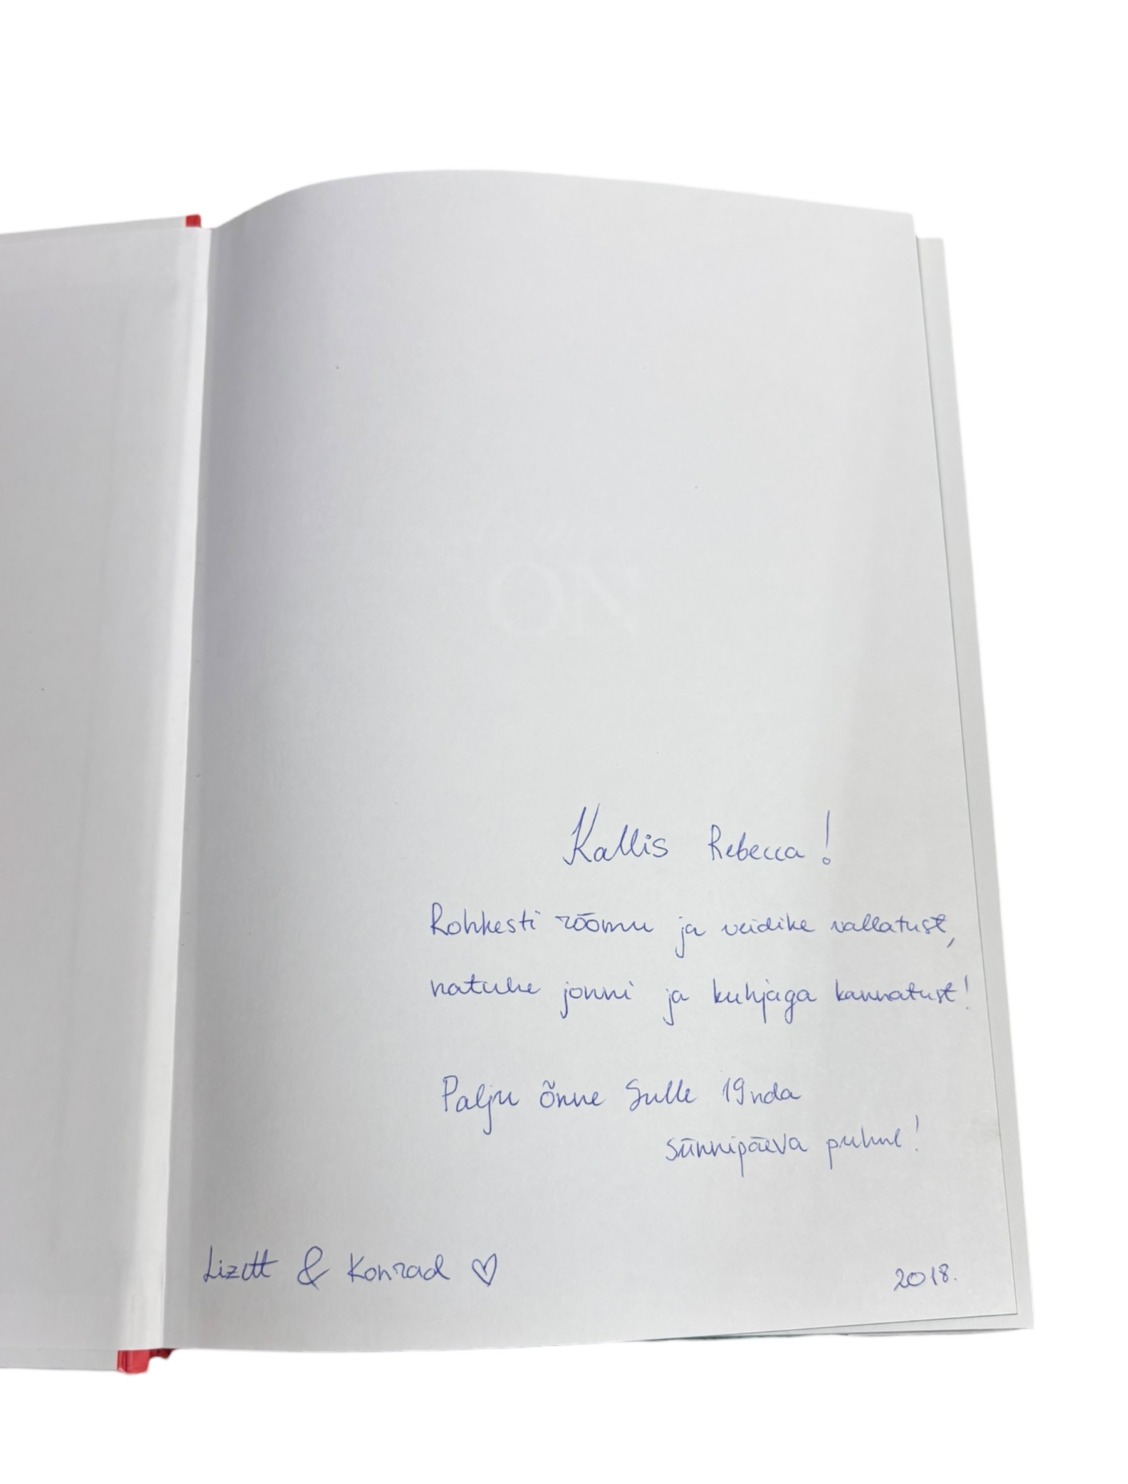 ON
Kallis Rebecca!
Rohkesti rõõmu ja veidike vallatust,
natuke jonni ja kuhjaga kannatust!
Palju õnne Sulle 19nda
sünnipäeva puhul!
Lizett & Konrad ♡
2018.